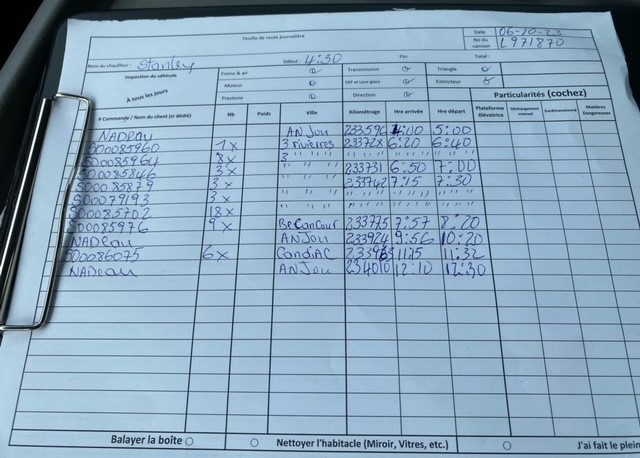 Feuille de route journalière
Date 06-10-23
No du camion L971870
Nom du chauffeur : Stanley Début : 4:30 Fin Total :
Inspection du véhicule
À tous les jours
Freins & air Transmission Triangle
Moteur Extincteur
Prestone Direction
Particularités (cochez)
# Commande / Nom du client (si dédié) Nb Poids Ville Kilométrage Hre arrivée Hre départ Plateforme élévatrice Déchargement manuel Surdimensionné Matières Dangereuses
NADeau ANJou 233596 4:00 5:00
S00085960 1x 3 rivieres 233728 6:20 6:40
S00085964 8x 3 " " " " " " " " " " " "
S00085846 3x " " " " 233731 6:50 7:00
S00085879 3x " " " " 233742 7:15 7:30
S00079193 3x " " " " " " " " " " " "
S00085702 18x " " " "
S00085976 9x BeCanCour 233775 7:57 8:20
NADeau ANJou 233924 9:56 10:20
S00086075 6x CandiAC 11:15 11:32
NADeau ANJou 234010 12:10 12:30
Balayer la boîte Nettoyer l'habitacle (Miroir, Vitres, etc.) J'ai fait le plein